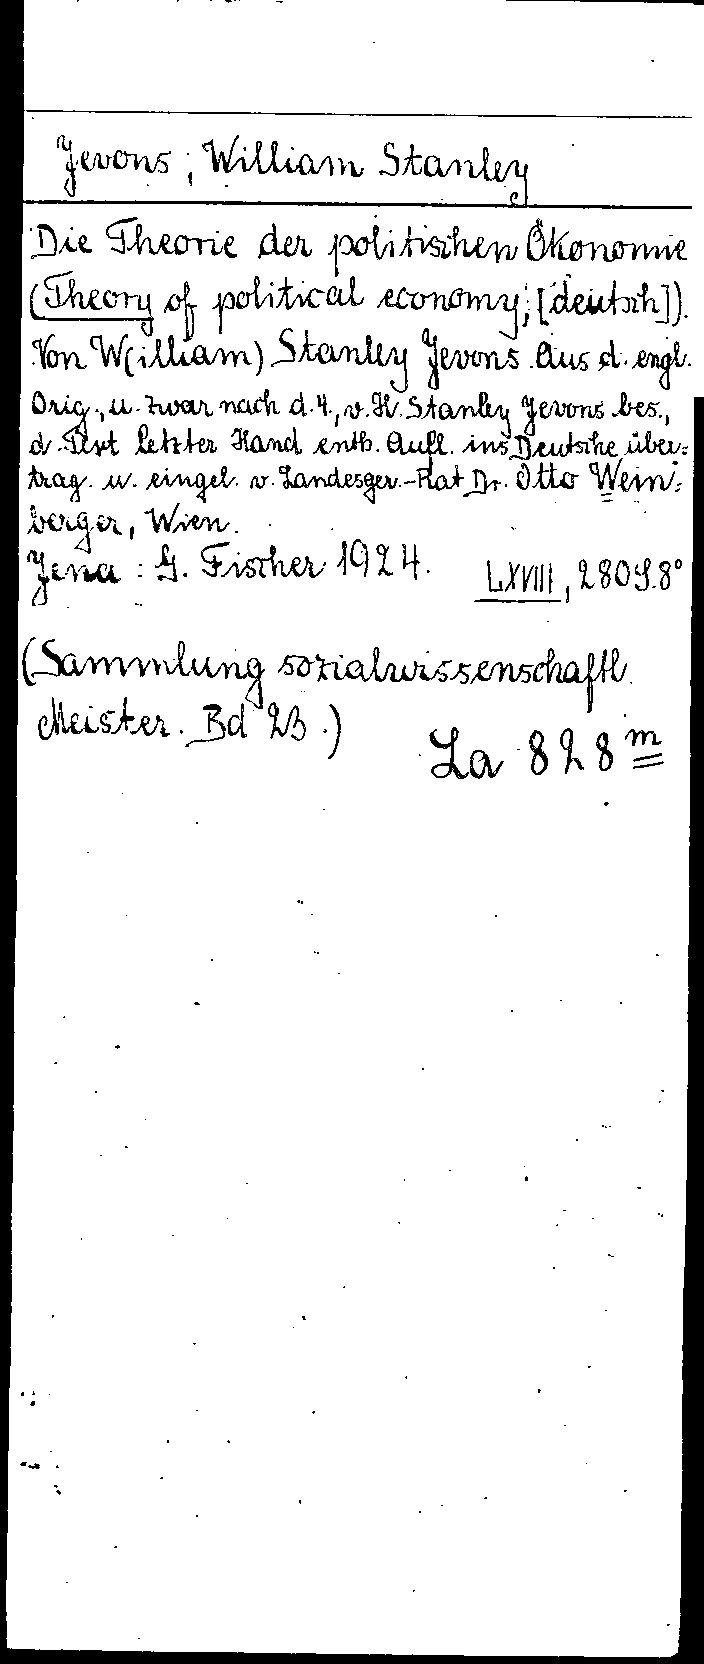 Jevons, William Stanley
Die Theorie der politischen Ökonomie
(Theory of political economy, [deutsch]).
Von W(illiam) Stanley Jevons. Aus d. engl.
Orig., u. zwar nach d. 4., v. H. Stanley Jevons bes.,
d. Text letzter Hand enth. Aufl. ins Deutsche über=
trag. u. eingel. v. Landesger.-Rat Dr. Otto Wein=
berger, Wien.
Jena: G. Fischer 1924. LXVIII, 280 S. 8°
(Sammlung sozialwissenschaftl.
Meister. Bd 23.)
La 828 m